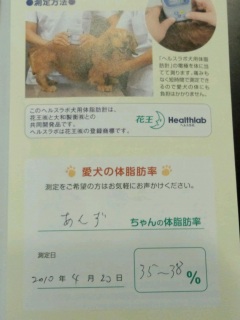 ●測定方法●
「ヘルスラボ犬用体脂肪
計」の電極を体に当
てて測ります。痛みも
なく短時間で測定でき
るので愛犬の体にも
負担はかかりません。
このヘルスラボ犬用体脂肪計は、
花王㈱と大和製衡㈱との
共同開発品です。
ヘルスラボは花王㈱の登録商標です。
花王
Healthlab
愛犬の体脂肪率
測定をご希望の方はお気軽にお声かけください。
あんず ちゃんの体脂肪率
測定日
2010年 4月 23日
35〜38 %